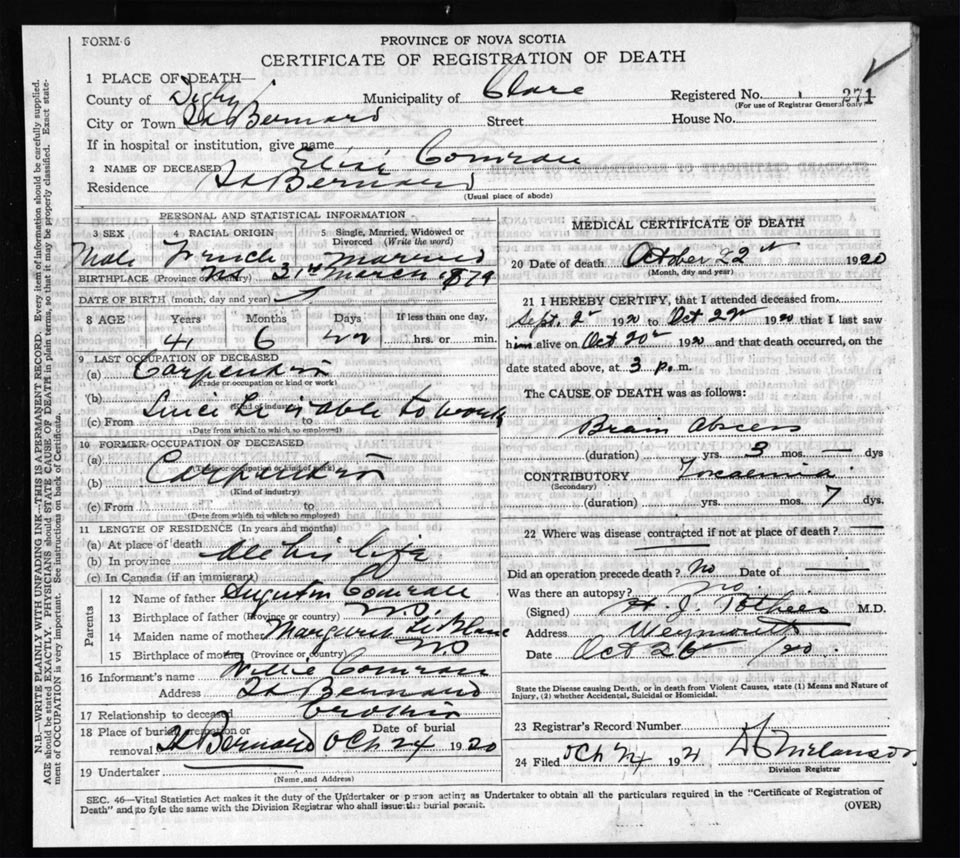 FORM 6
PROVINCE OF NOVA SCOTIA
CERTIFICATE OF REGISTRATION OF DEATH
1 PLACE OF DEATH—
County of Digby Municipality of Clare Registered No. 271
(For use of Registrar General only)
City or Town St Bernard Street House No.
If in hospital or institution, give name
2 NAME OF DECEASED Comeau
Residence St Bernard
(Usual place of abode)
PERSONAL AND STATISTICAL INFORMATION
3 SEX 4 RACIAL ORIGIN Single, Married, Widowed or Divorced (Write the word)
Male French Married
BIRTHPLACE (Province or Country) NS 31st March 1879
DATE OF BIRTH (month, day and year)
8 AGE Years Months Days If less than one day,
41 6 22 hrs. or min.
9 LAST OCCUPATION OF DECEASED
(a) Carpenter
(Trade or occupation or kind of work)
(b)
(Kind of industry)
(c) From to
(Date from which to which so employed)
10 FORMER OCCUPATION OF DECEASED
(a)
(Trade or occupation or kind of work)
(b) Carpenter
(Kind of industry)
(c) From to
(Date from which to which so employed)
11 LENGTH OF RESIDENCE (In years and months)
(a) At place of death
(b) In province All his life
(c) In Canada (if an immigrant)
Parents
12 Name of father Augustin Comeau
13 Birthplace of father (Province or country) NS
14 Maiden name of mother Margaret LeBlanc
15 Birthplace of mother (Province or country) NS
16 Informant's name Willie Comeau
Address St Bernard
17 Relationship to deceased
18 Place of burial, cremation or removal St Bernard Date of burial Oct 24 1920
19 Undertaker
(Name and Address)
MEDICAL CERTIFICATE OF DEATH
20 Date of death October 22 1920
(Month, day and year)
21 I HEREBY CERTIFY, that I attended deceased from
Sept. 2 1920 to Oct 22 1920 that I last saw
him alive on Oct 20 1920 and that death occurred, on the
date stated above, at 3 p. m.
The CAUSE OF DEATH was as follows:
Brain Abscess
(duration) yrs. 3 mos. — dys
CONTRIBUTORY Toxaemia
(Secondary)
(duration) yrs. mos. 7 dys.
22 Where was disease contracted if not at place of death? —
Did an operation precede death? No Date of —
Was there an autopsy? no
(Signed) M.D.
Address Weymouth
Date Oct 26 /20
State the Disease causing Death, or in death from Violent Causes, state (1) Means and Nature of
Injury, (2) whether Accidental, Suicidal or Homicidal.
23 Registrar's Record Number
24 Filed 192
Division Registrar
SEC. 46—Vital Statistics Act makes it the duty of the Undertaker or person acting as Undertaker to obtain all the particulars required in the "Certificate of Registration of
Death" and to fyle the same with the Division Registrar who shall issue the burial permit. (OVER)
N.B.—WRITE PLAINLY WITH UNFADING INK—THIS IS A PERMANENT RECORD. Every item of information should be carefully supplied.
AGE should be stated EXACTLY. PHYSICIANS should STATE CAUSE OF DEATH in plain terms, so that it may be properly classified. Exact state-
ment of OCCUPATION is very important. See instructions on back of Certificate.